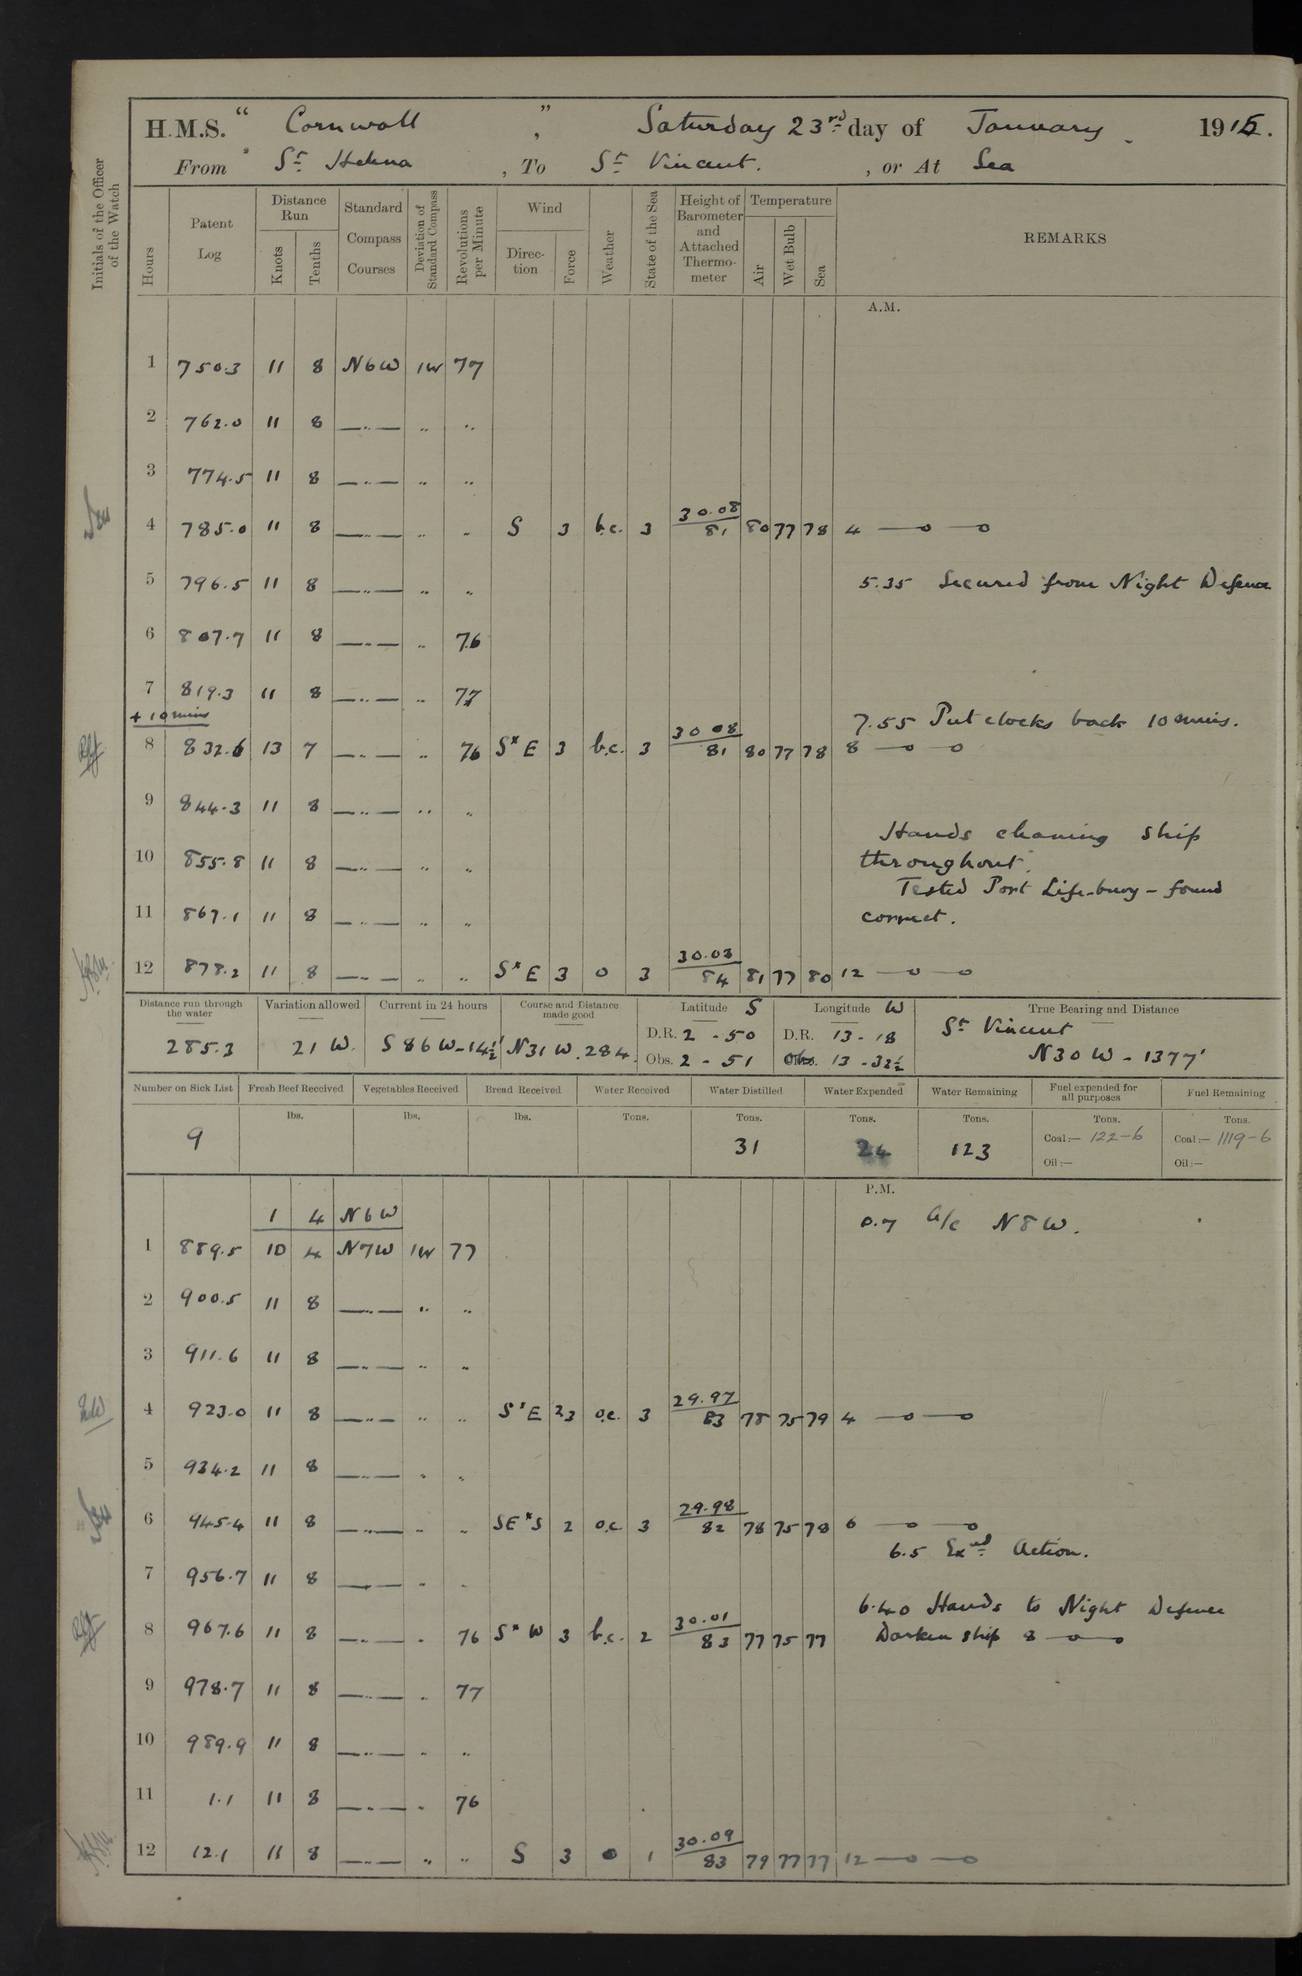 H.M.S. " Cornwall ", Saturday 23rd day of January 1915.
From St Helena, To St Vincent., or At Sea
Initials of the Officer of the Watch
Hours Patent Log Distance Run Knots Tenths Standard Compass Courses Deviation of Standard Compass Revolutions per Minute Wind Direction Force Weather State of the Sea Height of Barometer and Attached Thermometer Temperature Air Wet Bulb Sea REMARKS
A.M.
1 750.3 11 8 N6W 1W 77
2 762.0 11 8 —..— .. ..
3 774.5 11 8 —..— .. ..
4 785.0 11 8 —..— .. .. S 3 b.c. 3 30.08 81 80 77 78 4 —o —o
5 796.5 11 8 —..— .. .. 5.35 Secured from Night Defence
6 807.7 11 8 —..— .. 76
7 819.3 11 8 —..— .. 77
+ 10 mins 7.55 Put clocks back 10 mins.
8 832.6 13 7 —..— .. 76 SxE 3 b.c. 3 30.08 81 80 77 78 8 —o —o
9 844.3 11 8 —..— .. ..
Hands cleaning ship
10 855.8 11 8 —..— .. .. throughout.
Tested Port Life-buoy - found
11 867.1 11 8 —..— .. .. correct.
12 878.2 11 8 —..— .. .. SxE 3 o 3 30.03 84 81 77 80 12 —o —o
Distance run through the water Variation allowed Current in 24 hours Course and Distance made good Latitude S Longitude W True Bearing and Distance
285.3 21 W. S 86 W - 14½' N 31 W. 284. D.R. 2 - 50 D.R. 13 - 18 St Vincent
Obs. 2 - 51 Obs. 13 - 32½ N 30 W - 1377'
Number on Sick List Fresh Beef Received Vegetables Received Bread Received Water Received Water Distilled Water Expended Water Remaining Fuel expended for all purposes Fuel Remaining
lbs. lbs. lbs. Tons. Tons. Tons. Tons. Tons. Tons.
9 31 24 123 Coal:— 122-6 Coal:— 1119-6
Oil:— Oil:—
P.M.
1 4 N6W 0.7 a/c N 8 W.
1 889.5 10 4 N7W 1W 77
2 900.5 11 8 —..— .. ..
3 911.6 11 8 —..— .. ..
4 923.0 11 8 —..— .. .. S'E 23 o.c. 3 29.97 83 78 75 79 4 —o —o
5 934.2 11 8 —..— .. ..
6 945.4 11 8 —..— .. .. SExS 2 o.c. 3 29.98 82 78 75 78 6 —o —o
6.5 Exed Action.
7 956.7 11 8 —..— .. ..
6.40 Hands to Night Defence
8 967.6 11 8 —..— .. 76 SxW 3 b.c. 2 30.01 83 77 75 77 Darken ship 8 —o—o
9 978.7 11 8 —..— .. 77
10 989.9 11 8 —..— .. ..
11 1.1 11 8 —..— .. 76
12 12.1 11 8 —..— .. .. S 3 o 1 30.09 83 79 77 77 12 —o —o